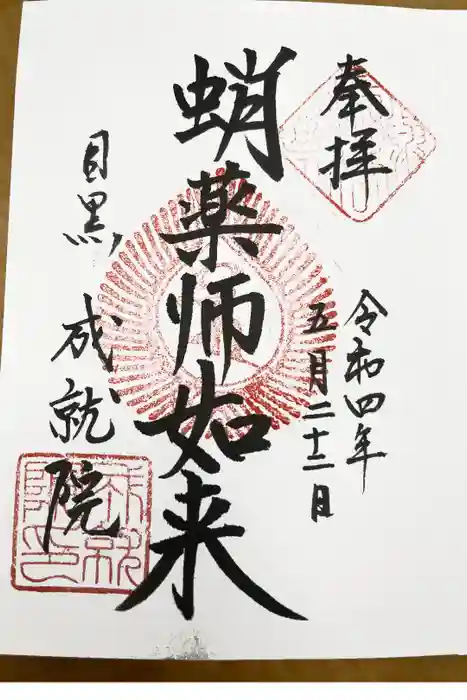 奉拝
令和四年
五月二十二日
蛸薬師如来
目黒成就院